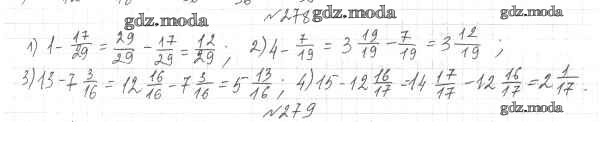 gdz.moda
№278
gdz.moda
gdz.moda
1) 1 - 17/29 = 29/29 - 17/29 = 12/29 ; 2) 4 - 7/19 = 3 19/19 - 7/19 = 3 12/19 ;
3) 13 - 7 3/16 = 12 16/16 - 7 3/16 = 5 13/16 ; 4) 15 - 12 16/17 = 14 17/17 - 12 16/17 = 2 1/17 .
№279
gdz.moda
gdz.moda